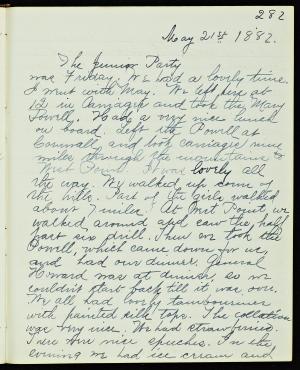 282
May 21st 1882.
The Junior Party
was Friday. We had a lovely time.
I went with May. We left here at
12 in carriages and took the Mary
Powell. Had a very nice lunch
on board. Left the Powell at
Cornwall and took carriages nine
miles through the mountains to
West Point. It was lovely all
the way. We walked up some of
the hills. Part of the girls walked
about 7 miles! At West Point, we
walked around and saw the half
past six drill. Then we took the
Powell, which came down for us,
and had our dinner. General
Howard was at dinner, so we
couldn't start back till it was over.
We all had lovely tambourines
with painted silk tops. The collation
was very nice. We had strawberries.
There were nice speeches. In the
evening we had ice cream and